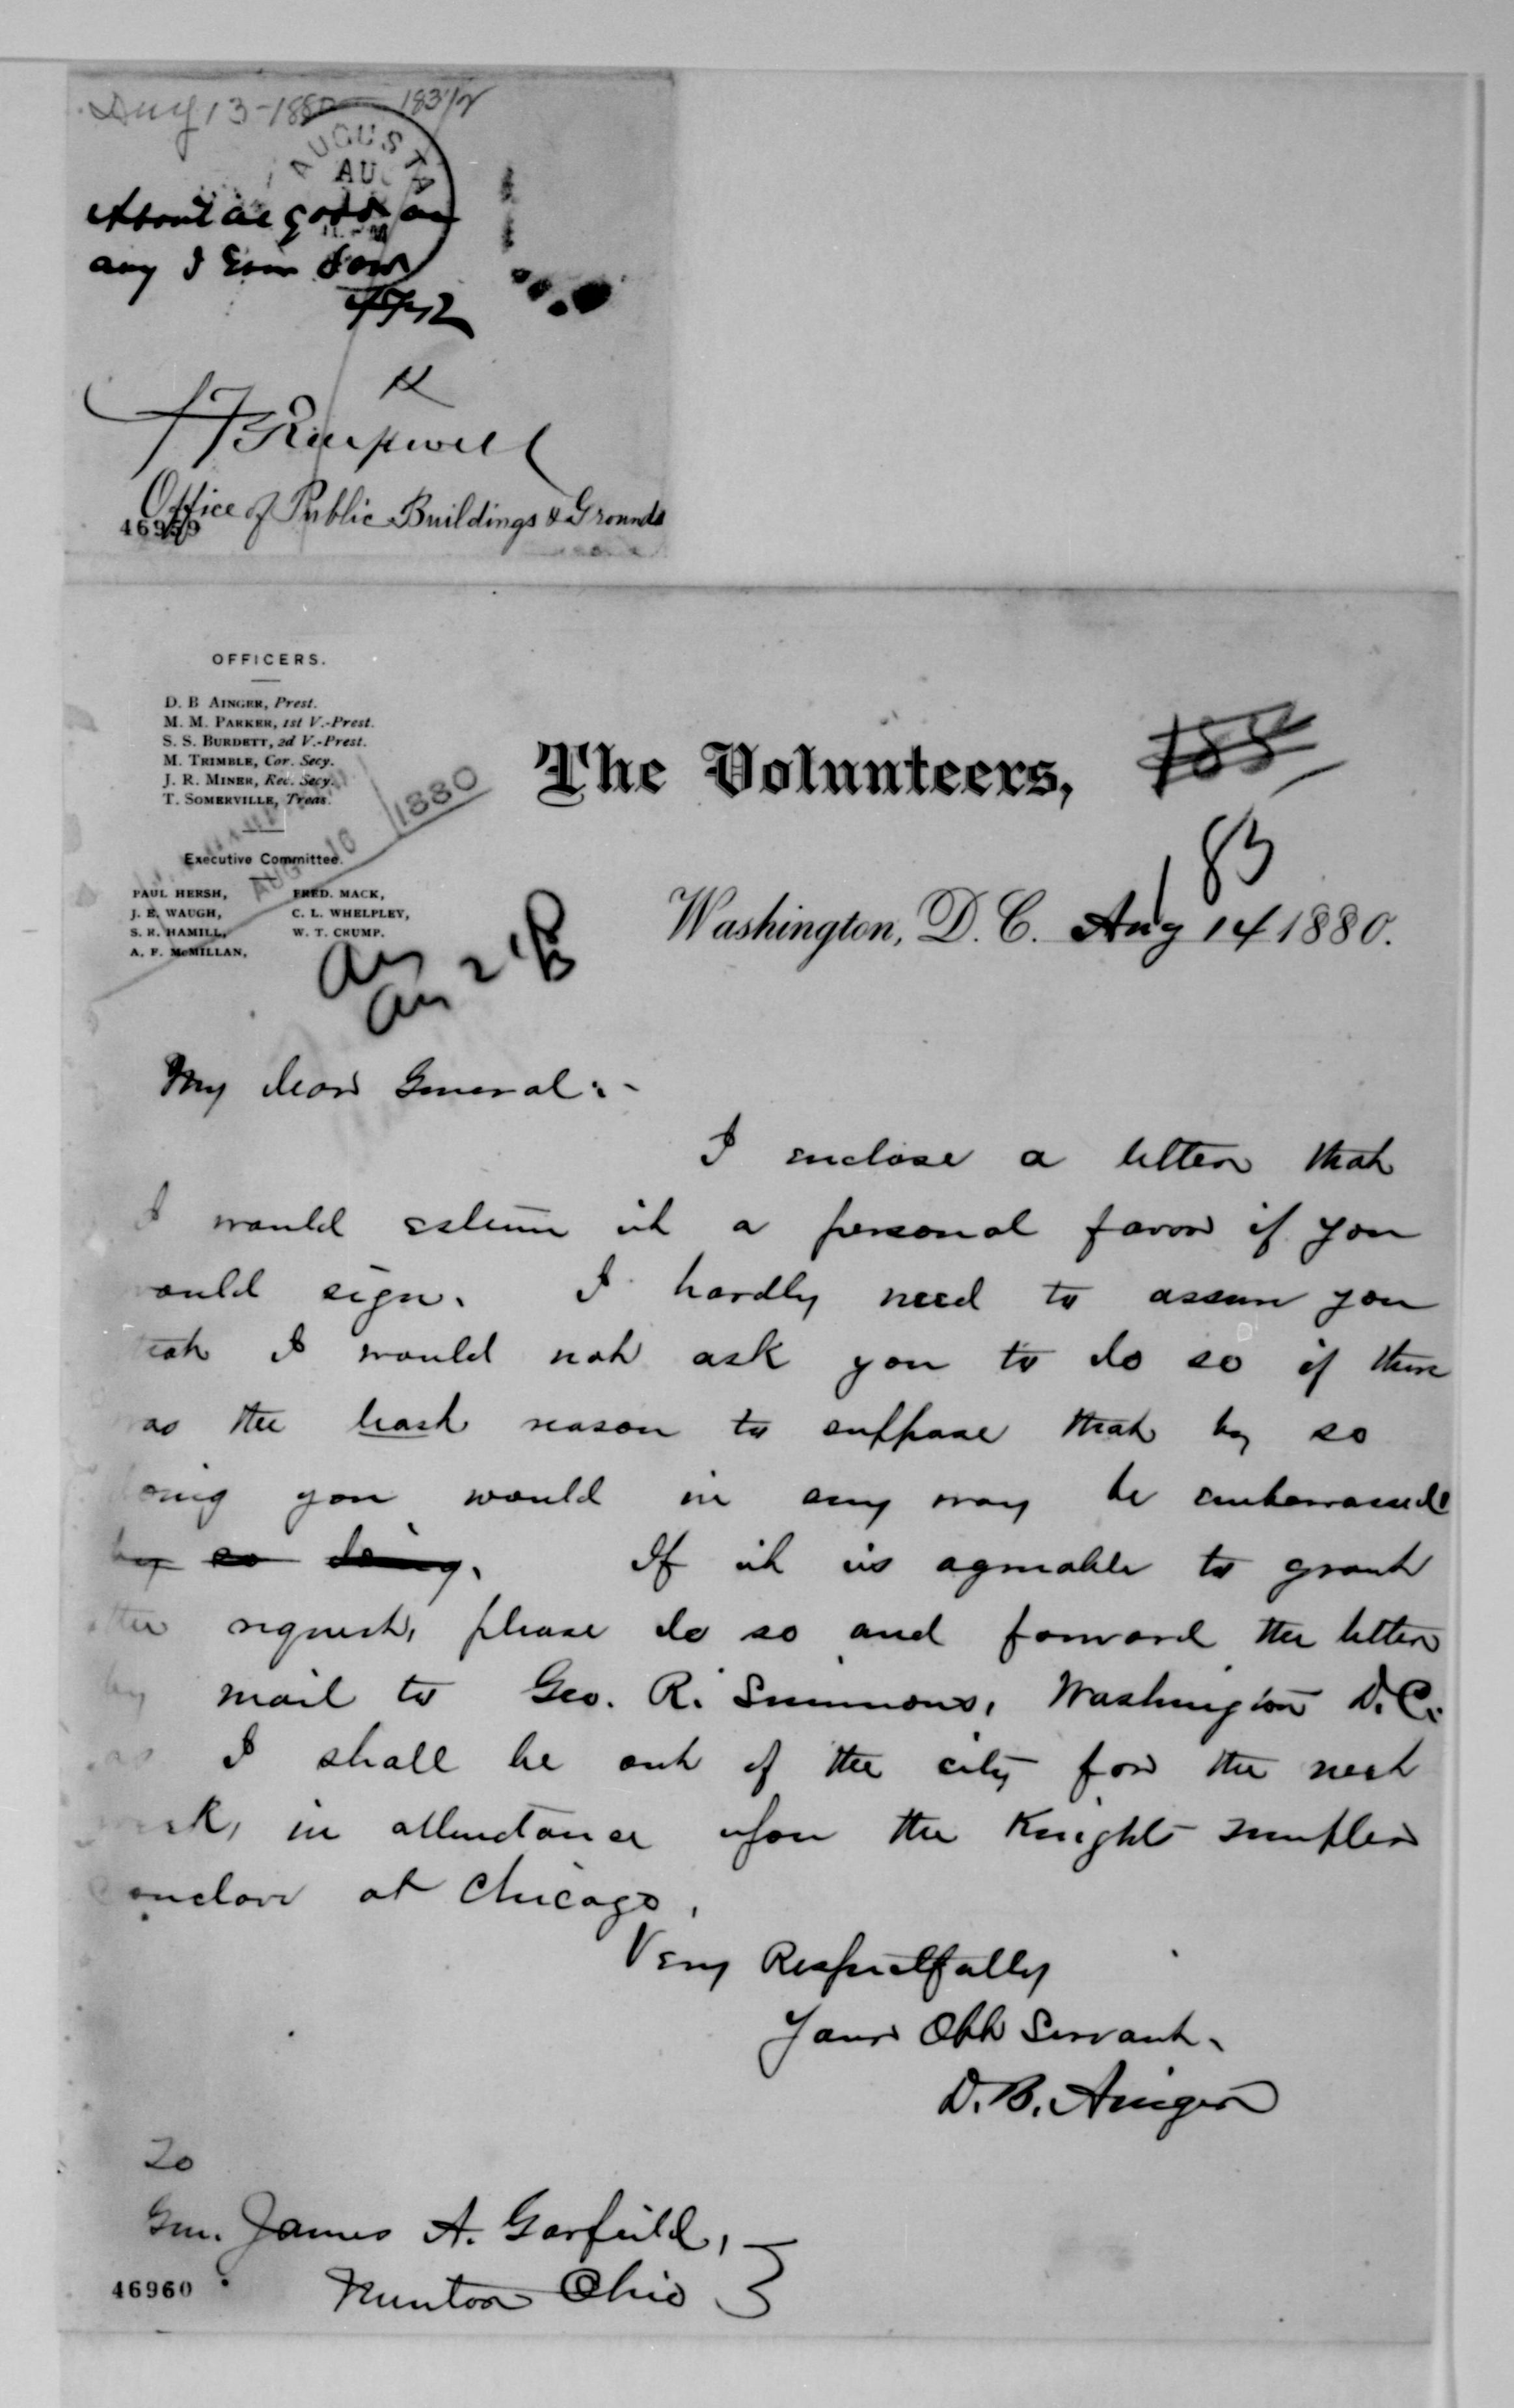 Aug 13-1880 183 1/2
AUGUSTA
AU
About as good as
any I Ever Saw
Rockwell
Office of Public Buildings & Grounds
46959
OFFICERS.
D. B AINGER, Prest.
M. M. PARKER, 1st V.-Prest.
S. S. BURDETT, 2d V.-Prest.
M. TRIMBLE, Cor. Secy.
J. R. MINER, Rec. Secy.
T. SOMERVILLE, Treas.
AUG 16 1880
Executive Committee.
PAUL HERSH, FRED. MACK,
J. E. WAUGH, C. L. WHELPLEY,
S. R. HAMILL, W. T. CRUMP.
A. F. McMILLAN,
The Volunteers,
188
183
Washington, D. C. Aug 14 1880.
My dear General:-
I enclose a letter that
I would esteem it a personal favor if you
would sign. I hardly need to assure you
that I would not ask you to do so if there
was the least reason to suppose that by so
doing you would in any way be embarrassed
by so doing. If it is agreeable to grant
the request, please do so and forward the letter
by mail to Geo. R. Simmons, Washington D.C.
as I shall be out of the city for the next
week, in attendance upon the Knights Templer
Conclave at Chicago.
Very Respectfully
Your Obt Servant.
D. B. Ainger
To
Gen. James A. Garfield,
Mentor Ohio
46960